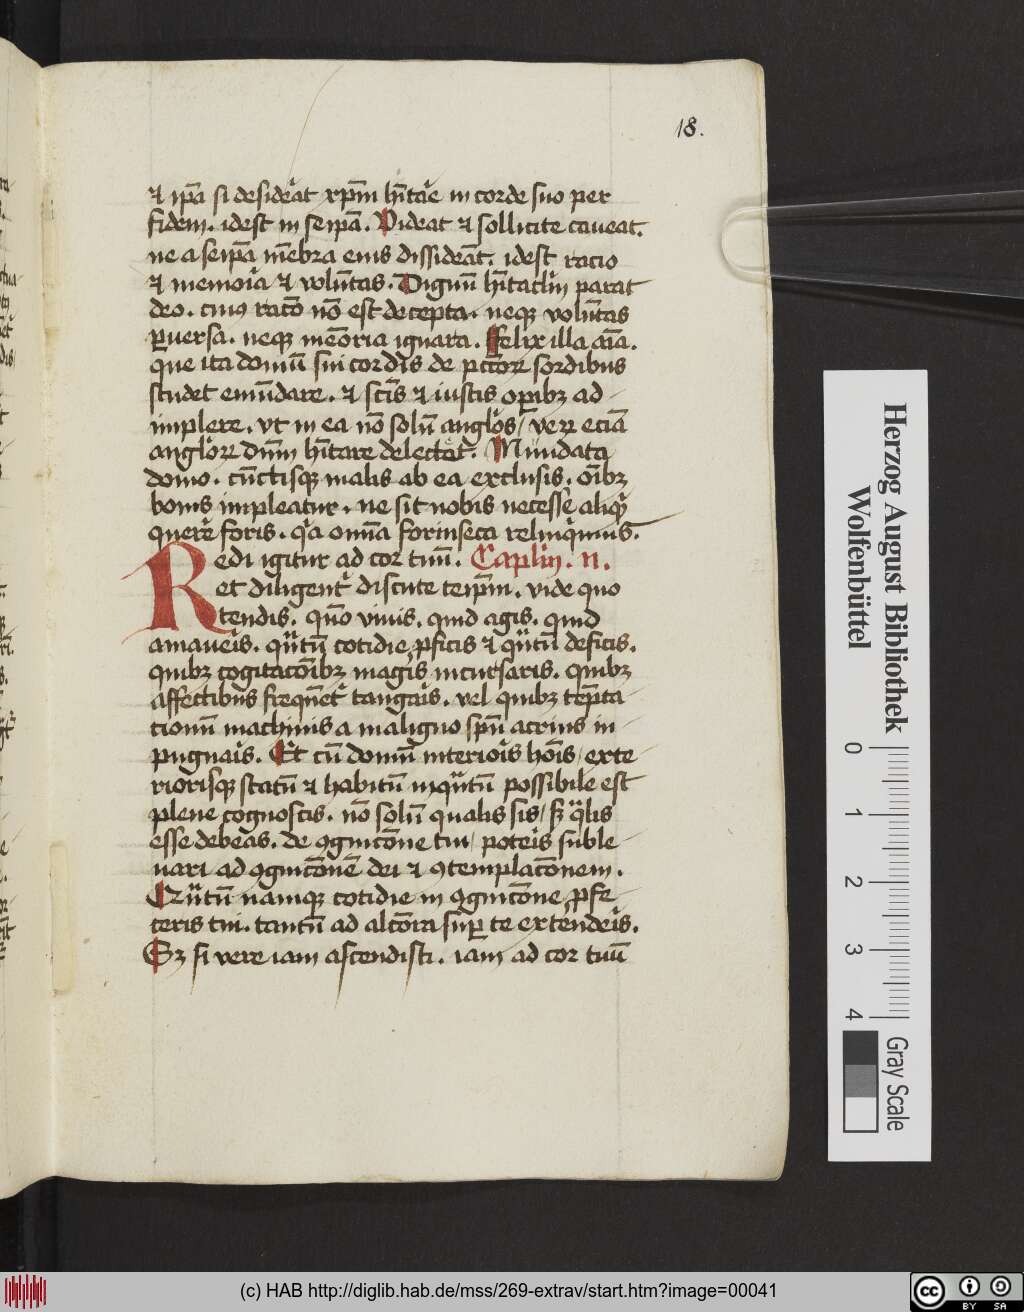 18.
⁊ ip̄a si desideāt xp̄m hītāe in corde suo per
fidem. idest in seip̄a. Videat ⁊ sollicite caveat.
ne a seip̄a mēbra eius dissideāt. idest racio
⁊ memoīa ⁊ volūtas. Dignū hītaclm̄ parat
deo. cuiꝰ racō nō est decepta. neqꝫ volūtas
ꝑuersa. neqꝫ meōria ignara. Felix illa aīa.
que ita domū sui cordis de pctōꝝ sordibus
studet emūdare. ⁊ sctīs ⁊ iustis oꝑibꝫ ad-
implere. vt in ea nō solū anglōs / veꝝ eciā
anglōꝝ dnm̄ hītare delectet᷑. Mundata
domo. cūctisqꝫ malis ab ea exclusis. oībꝫ
bonis impleatur. ne sit nobis necesse aliqͥ
querē foris. qͥa omīa forinseca relinqͥmus.
Redi igitur ad cor tuū. Caplm̄. n.
et diligent̉ discute teip̄m. vide quo
tendis. quō viuis. quid agis. quid
amaveīs. qͣtū cotidie ꝓficis ⁊ qͣtū deficis.
quibꝫ cogitacōibꝫ magis incursaris. quibꝫ
affectibus frequēt̉ tangaīs. vel quibꝫ tēpta
tionū machinis a maligno spū acrius in-
pugnaīs. Et cū domū interioīs hōis / exte-
riorisqꝫ statū ⁊ habitū inqͣtū possibile est
plene cognoscis. nō solū qualis sis / sꝫ qͣlis
esse debeas. de ꝯgnicōne tui / poteīs suble-
uari ad ꝯgnicōnē dei ⁊ ꝯtemplacōnem.
Qͣtū namqꝫ cotidie in ꝯgnicōne ꝓfe-
ceris tui. tantū ad altōra suꝑ te extendeīs.
Sꝫ si vere iam ascendisti. iam ad cor tuū
Herzog August Bibliothek
Wolfenbüttel
0 1 2 3 4
Gray Scale
(c) HAB http://diglib.hab.de/mss/269-extrav/start.htm?image=00041
cc BY SA